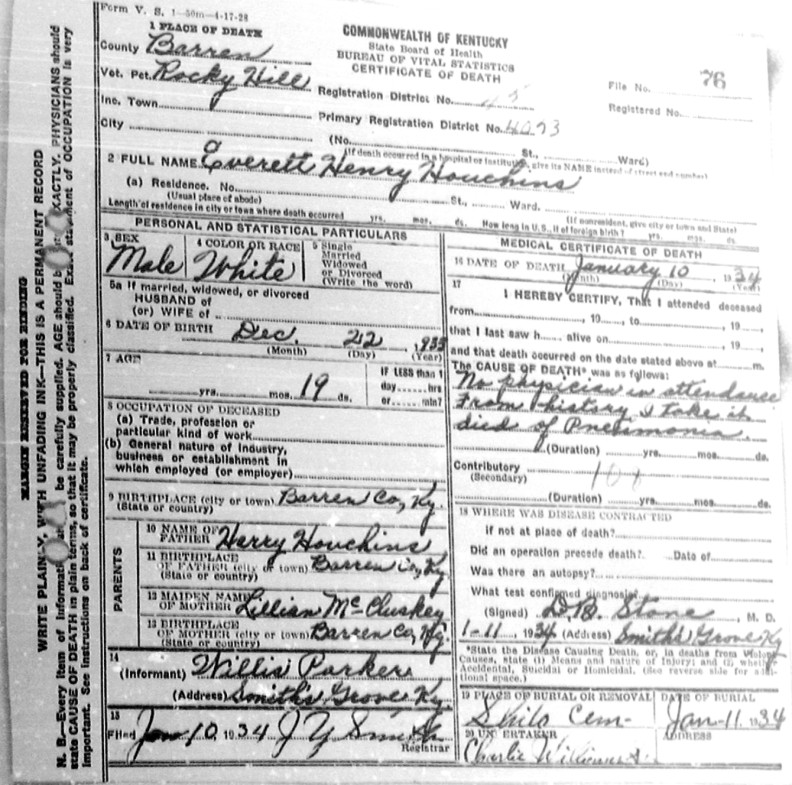 Form V. S. 1—50m—4-17-28
1 PLACE OF DEATH
County Barren
Vot. Pct. Rocky Hill
Inc. Town
City
COMMONWEALTH OF KENTUCKY
State Board of Health
BUREAU OF VITAL STATISTICS
CERTIFICATE OF DEATH
File No. 76
Registered No.
Registration District No.
Primary Registration District No. 4073
(No. St., Ward)
(If death occurred in a hospital or institution, give its NAME instead of street and number)
2 FULL NAME Everett Henry Houchins
(a) Residence. No. St., Ward.
(Usual place of abode) (If nonresident, give city or town and State)
Length of residence in city or town where death occurred yrs. mos. ds. How long in U. S., if of foreign birth? yrs. mos. ds.
PERSONAL AND STATISTICAL PARTICULARS
3 SEX
Male
4 COLOR OR RACE
White
5 Single
Married
Widowed
or Divorced
(Write the word)
5a If married, widowed, or divorced
HUSBAND of
(or) WIFE of
6 DATE OF BIRTH Dec. 22, 1933
(Month) (Day) (Year)
7 AGE
yrs. mos. 19 ds.
IF LESS than 1
day hrs
or min?
8 OCCUPATION OF DECEASED
(a) Trade, profession or
particular kind of work
(b) General nature of industry,
business or establishment in
which employed (or employer)
9 BIRTHPLACE (city or town) Barren Co, Ky.
(State or country)
PARENTS
10 NAME OF
FATHER Harry Houchins
11 BIRTHPLACE
OF FATHER (city or town) Barren Co, Ky
(State or country)
12 MAIDEN NAME
OF MOTHER Lillian McCluskey
13 BIRTHPLACE
OF MOTHER (city or town) Barren Co, Ky.
(State or country)
14
(Informant) Willis Parker
(Address) Smiths Grove Ky.
15
Filed Jan 10, 1934 J Y Smith
Registrar
MEDICAL CERTIFICATE OF DEATH
16 DATE OF DEATH January 10, 1934
(Month) (Day) (Year)
17
I HEREBY CERTIFY, That I attended deceased
from , 19 , to , 19 ,
that I last saw h alive on , 19 ,
and that death occurred on the date stated above at m.
The CAUSE OF DEATH* was as follows:
No physician in attendance
From history I take it
died of Pneumonia.
(Duration) yrs. mos. ds.
Contributory
(Secondary)
(Duration) yrs. mos. ds.
18 WHERE WAS DISEASE CONTRACTED
if not at place of death?
Did an operation precede death? Date of
Was there an autopsy?
What test confirmed diagnosis?
(Signed) Stone, M. D.
1-11, 1934 (Address) Smiths Grove Ky
*State the Disease Causing Death, or, in deaths from Violent
Causes, state (1) Means and nature of Injury; and (2) whether
Accidental, Suicidal or Homicidal. (See reverse side for additional space.)
19 PLACE OF BURIAL OR REMOVAL
Shilo Cem-
DATE OF BURIAL
Jan-11 1934
20 UNDERTAKER
Charlie Williams
ADDRESS
MARGIN RESERVED FOR BINDING
WRITE PLAINLY, WITH UNFADING INK—THIS IS A PERMANENT RECORD
N. B.—Every item of information be carefully supplied. AGE should be EXACTLY. PHYSICIANS should
state CAUSE OF DEATH in plain terms, so that it may be properly classified. Exact statement of OCCUPATION is very
important. See instructions on back of certificate.